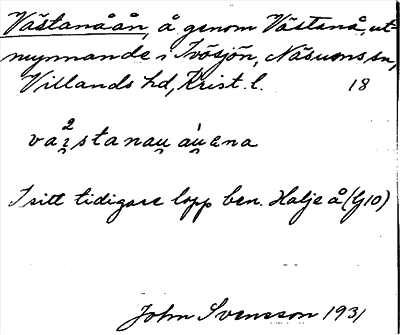 Västanåån, å genom Västanå, ut-
mynnande i Ivösjön, Näsums sn,
Villands hd, Krist. l. 18
va2i̯stanau̯ áu̯ena
I sitt tidigare lopp ben. Halje å (G10)
John Svensson 1931